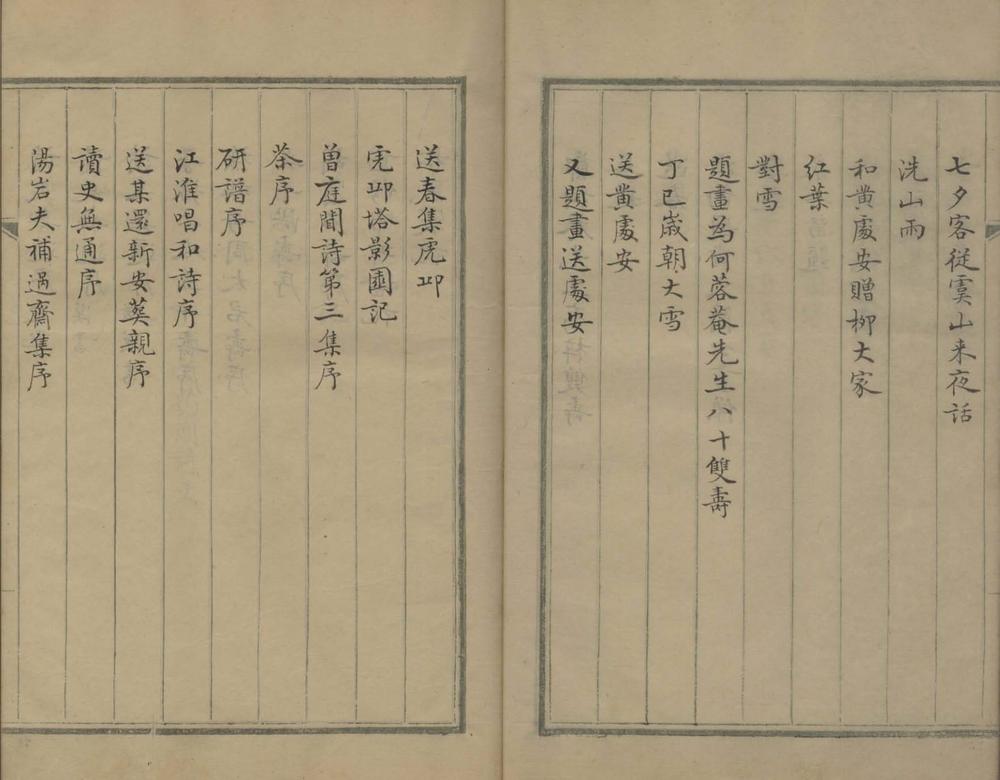 七夕客從虞山来夜話
洗山雨
和黄處安贈柳大家
紅葉
對雪
題畫為何蓉菴先生八十雙壽
丁巳歲朝大雪
送黄處安
又題畫送處安
送春集虎邱
虎邱塔影園記
曽庭聞詩第三集序
茶序
研譜序
江淮唱和詩序
送某還新安葬親序
讀史無通序
湯岩夫補過齋集序